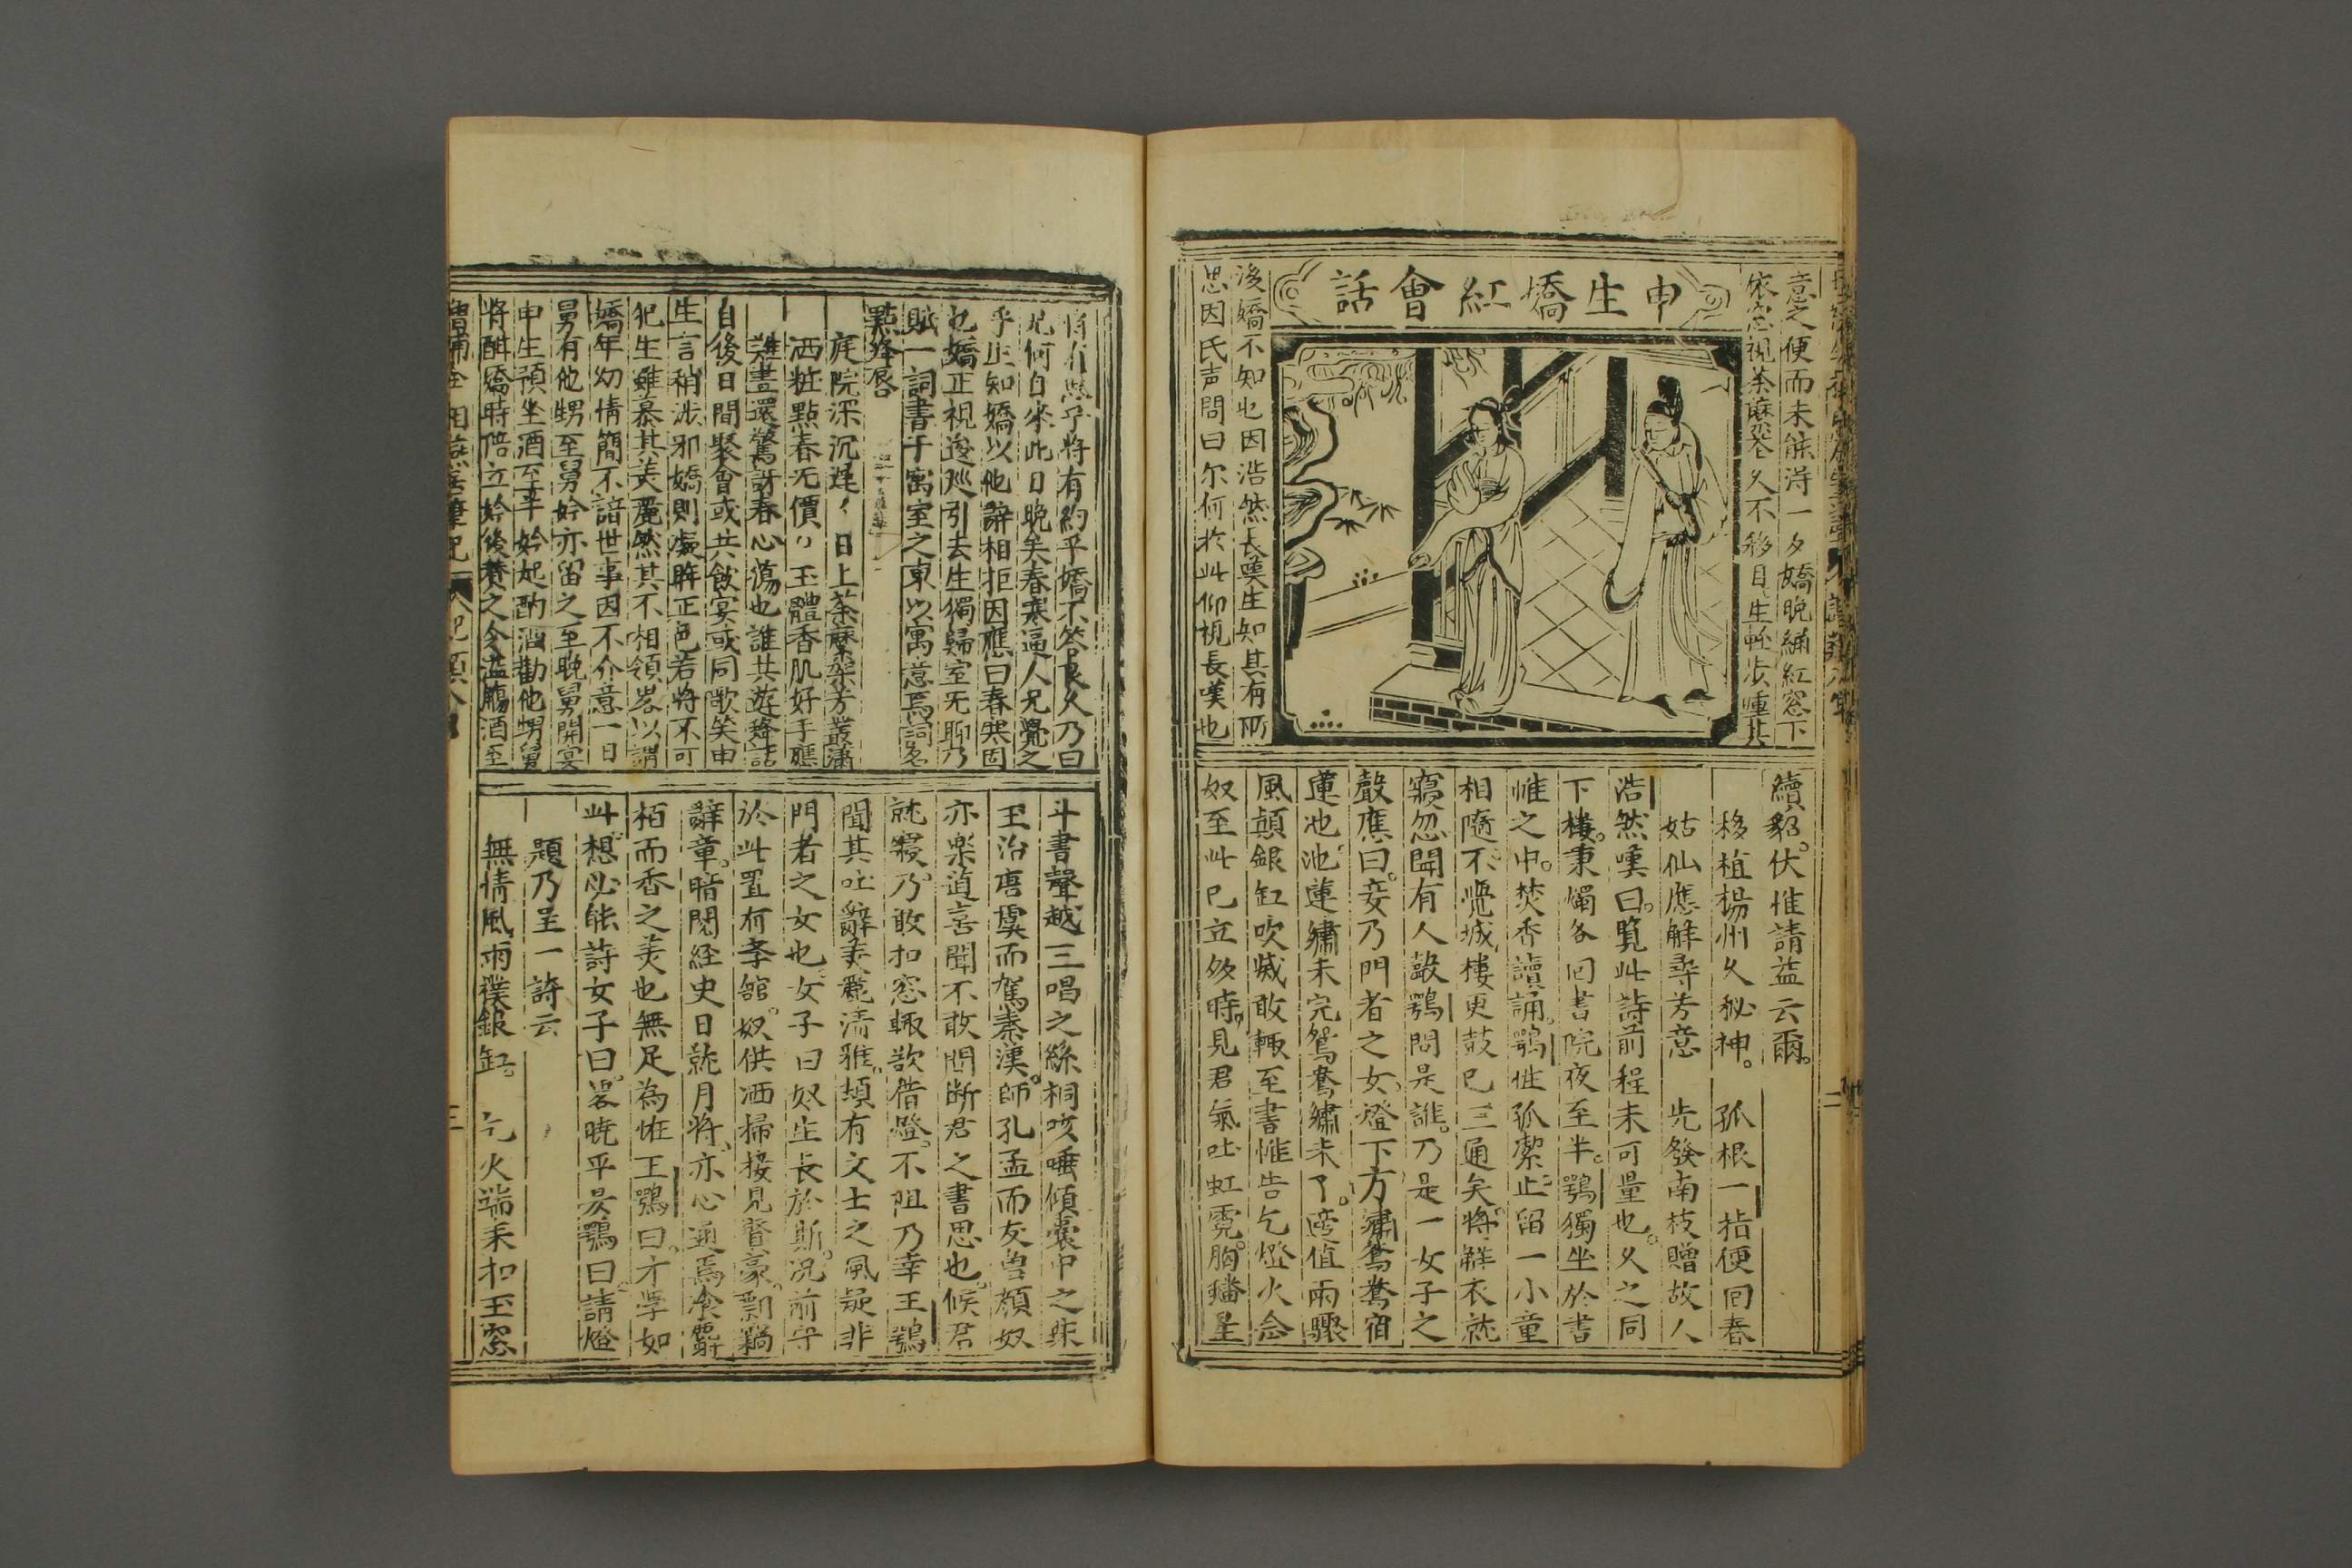 意之便而未能淂一夕嬌晩綉紅窓下
依窓視荼䕷架久不移目生輕步踵其
申生嬌紅會話
後嬌不知也因浩然長嘆生知其有所
思因氏声問曰尔何扵此仰視長嘆也
續貂。伏惟請益云爾。
移植楊州久秘神。孤根一指便回春
姑仙應解尋芳意　先發南枝贈故人
浩然嘆曰。覧此詩前程未可量也。久之同
下樓。秉燭各回書院夜至半。鶚獨坐於書
惟之中。焚香讀誦。鶚性孤潔止留一小童
相隨不覺城樓更鼓已三通矣。將解衣就
寢忽聞有人敲。鶚問是誰。乃是一女子之
聲應曰。妾乃門者之女。燈下方繡鴛鴦宿
蓮池池蓮繡未完鴛鴦繡未了。陡值雨驟
風顛銀缸吹滅敢輒至書惟告乞燈火念
奴至此已立多時。見君氣吐虹霓。胸蟠星
將有思乎將有約乎嬌不答良久乃曰
兄何自來此日晩矣春寒逼人兄覺之
乎生知嬌以他辭相拒因應曰春寒固
也嬌正視逡巡引去生獨歸室无聊乃
賦一詞書于寓室之東以寓意焉詞名
點絳唇
庭院深沉遲〻日上荼䕷架芳叢瀟
洒粧點春无價〻玉體香肌好手應
難畫還驚訝春心蕩也誰共遊蜂話
自後日間聚會或共飲宴或同歌笑申
生言稍涉邪嬌則凝眸正色若將不可
犯生雖慕其美麗然其不相領畧以謂
嬌年幼情簡不諳世事因不介意一日
舅有他甥至舅妗亦留之至晩舅開宴
申生預坐酒至半妗起酌酒勸他甥舅
將酣嬌時倍立妗後賛之令溢觴酒至
斗書聲越三唱之絲桐咳唾傾囊中之珠
王治唐虞而駕秦漢。師孔孟而友曽顔奴
亦樂道喜聞不敢間断君之書思也。候君
就寢乃敢扣窓輒欲借燈。不阻乃幸王鶚
聞其吐辭美麗清雅。頗有文士之風疑非
門者之女也。女子曰奴生長於斯。况前守
於此置有孝舘。奴供洒掃接見賢豪。剽竊
辭章。暗閱経史日就月將。亦心通焉飡麝
栢而香之美也無足為恠王鶚曰。才學如
此想必能詩女子曰。畧曉平昃鶚曰請燈
題乃呈一詩云
無情風雨撲銀缸。乞火端來扣玉窓
三